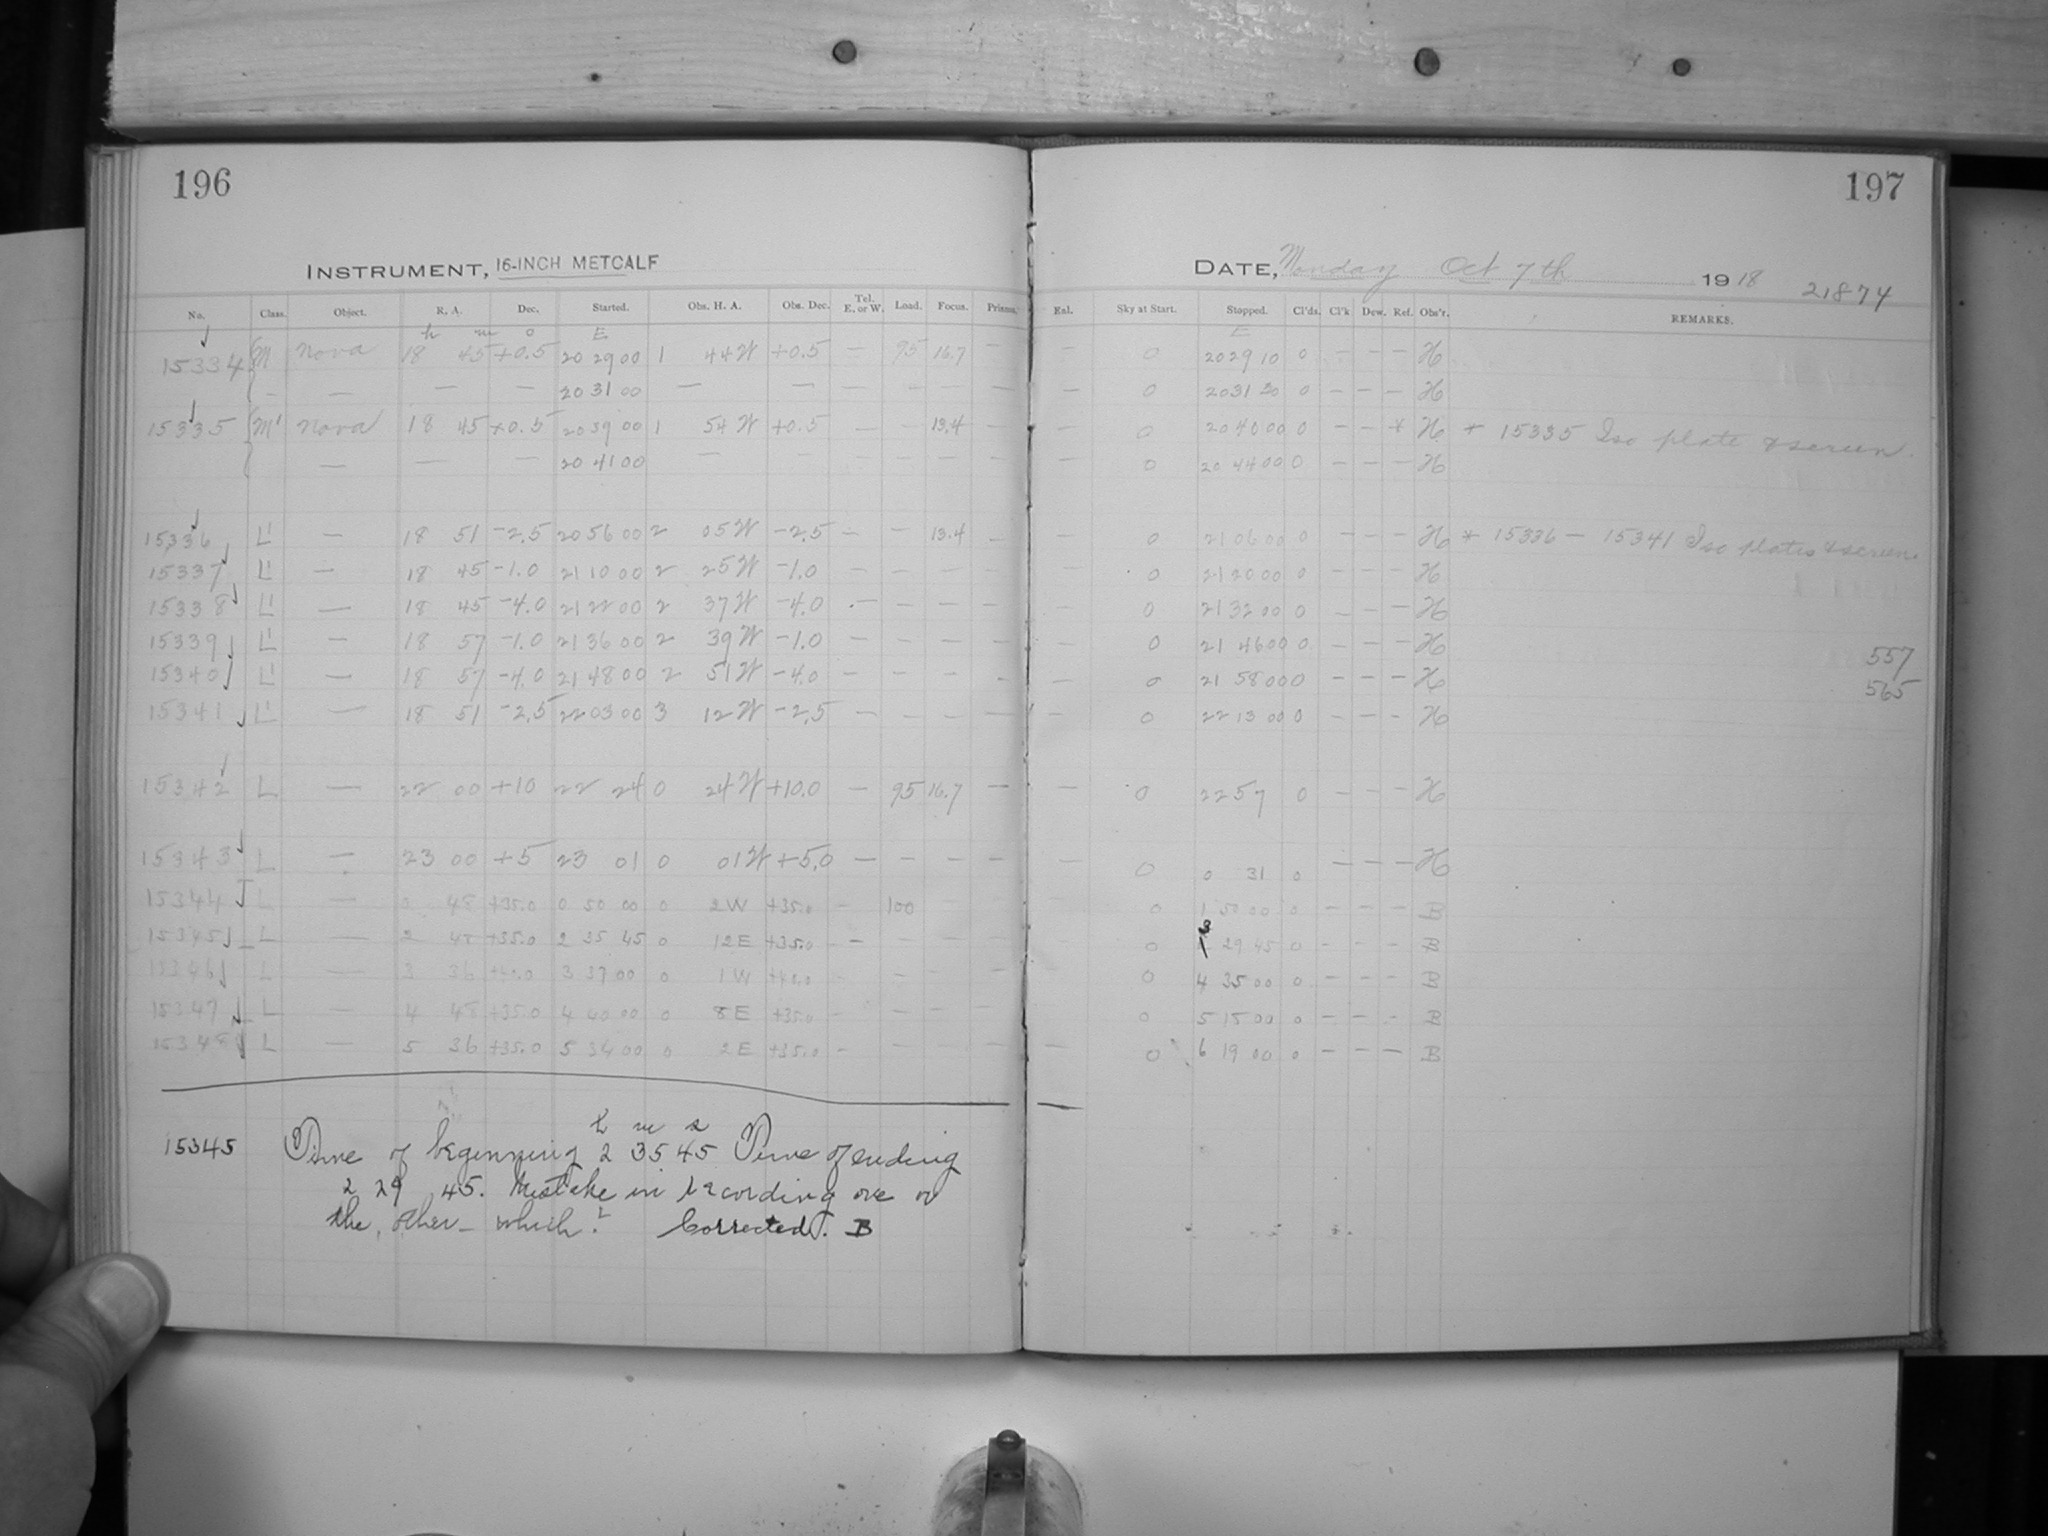 196
INSTRUMENT, 16-INCH METCALF
No. Class. Object. R. A. Dec. Started. Obs. H. A. Obs. Dec. Tel. E. or W. Load. Focus. Prisms.
h m o E
15334 M Nova 18 45 +0.5 20 29 00 1 44 W +0.5 — 95 16.7 —
— — — — 20 31 00 — — — — — —
15335 M' Nova 18 45 +0.5 20 39 00 1 54 W +0.5 — — 13.4 —
— — — 20 41 00 — — — — — —
15336 L' — 18 51 -2.5 20 56 00 2 05 W -2.5 — — 13.4 —
15337 L' — 18 45 -1.0 21 10 00 2 25 W -1.0 — — — —
15338 L' — 18 45 -4.0 21 22 00 2 37 W -4.0 — — — —
15339 L' — 18 57 -1.0 21 36 00 2 39 W -1.0 — — — —
15340 L' — 18 57 -4.0 21 48 00 2 51 W -4.0 — — — —
15341 L' — 18 51 -2.5 22 03 00 3 12 W -2.5 — — — —
15342 L — 22 00 +10 22 24 0 24 W +10.0 — 95 16.7 —
15343 L — 23 00 +5 23 01 0 01 W +5.0 — — — —
15344 L — 0 48 +35.0 0 50 00 0 2 W +35.0 — 100 — —
15345 L — 2 48 +35.0 2 35 45 0 12 E +35.0 — — — —
15346 L — 3 36 3 37 00 0 1 W — — — —
15347 L — 4 48 +35.0 4 40 00 0 8 E +35.0 — — — —
15348 L — 5 36 +35.0 5 34 00 0 2 E +35.0 — — — —
15345 Time of beginning 2 h 35 m 45 s Time of ending
2 29 45. Mistake in recording one or
the other — which? Corrected. B
197
DATE, Monday Oct 7th 1918 21874
Enl. Sky at Start. Stopped. Cl'ds. Cl'k Dew. Ref. Obs'r. REMARKS.
E
— 0 20 29 10 0 — — — H
— 0 20 31 20 0 — — — H
— 0 20 40 00 0 — — * H * 15335 Iso plate & screen.
— 0 20 44 00 0 — — — H
— 0 21 06 00 0 — — — H * 15336 — 15341 Iso plates & screen
— 0 21 20 00 0 — — — H
— 0 21 32 00 0 — — — H
— 0 21 46 00 0 — — — H
557
— 0 21 58 00 0 — — — H
565
— 0 22 13 00 0 — — — H
— 0 22 57 0 — — — H
— 0 0 31 0 — — — H
0 1 50 00 0 — — — B
0 3 29 45 0 — — — B
0 4 35 00 0 — — — B
0 5 15 00 0 — — — B
— 0 6 19 00 0 — — — B